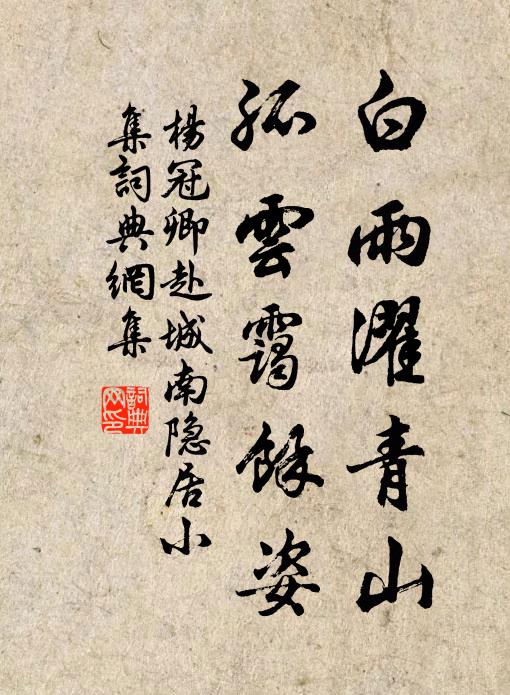 白雨濯青山
孤雲靄餘姿
楊冠卿赴城南隐居小
集詞典網集
詞典
网印